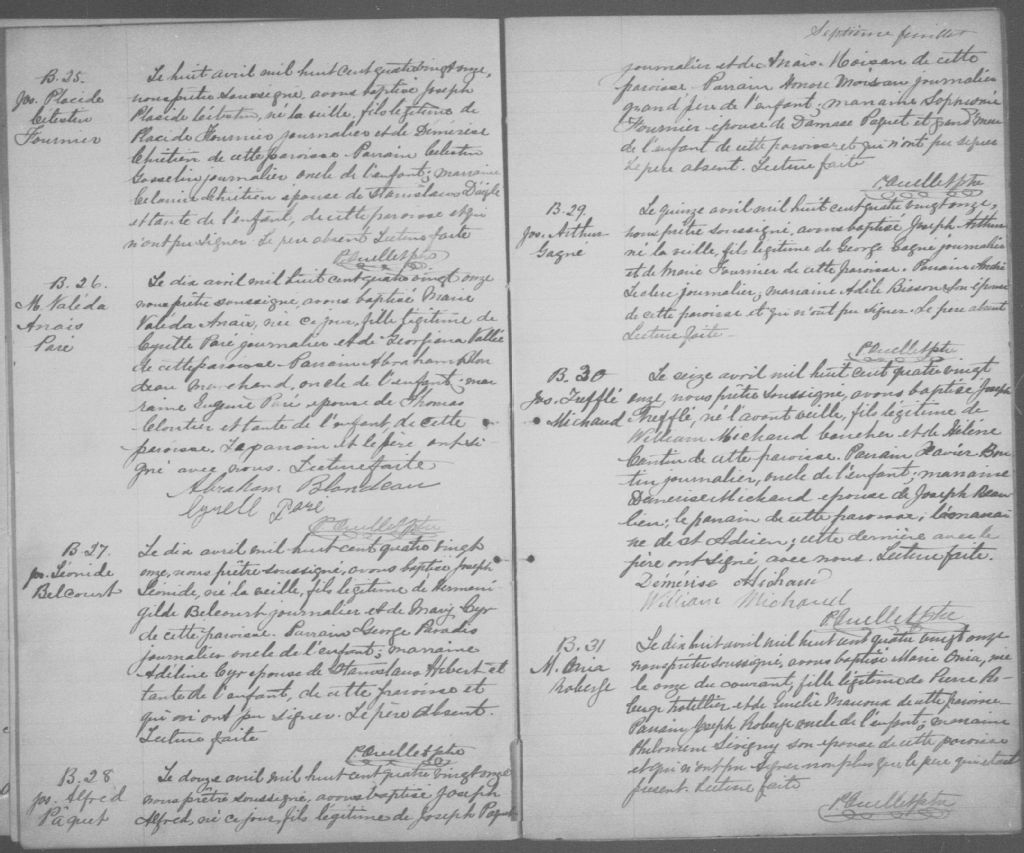 B. 25.
Jos. Placide
Célestin
Fournier
Le huit avril mil huit cent quatre vingt onze,
nous prêtre soussigné, avons baptisé Joseph
Placide Célestin, né la veille, fils légitime de
Placide Fournier, journalier et de Démérise
Chrétien de cette paroisse. Parrain Célestin
Gosselin journalier oncle de l'enfant; marraine
Célanire Chrétien épouse de Stanislaus Daigle
et tante de l'enfant, de cette paroisse et qui
n'ont pu signer. Le père absent Lecture faite
P. Ouellet ptre
B. 26.
M. Valéda
Anais
Paré
Le dix avril mil huit cent quatre vingt onze
nous prêtre soussigné, avons baptisé Marie
Valéda Anais, née ce jour, fille légitime de
Cyrille Paré journalier et de Georgiana Vallée
de cette paroisse. Parrain Abraham Blon
deau marchand, oncle de l'enfant; mar
raine Eugénie Paré épouse de Thomas
Cloutier et tante de l'enfant, de cette
paroisse. Le parrain et le père ont si
gné avec nous. Lecture faite
Abraham Blondeau
Cyrell Paré
P. Ouellet ptre
B. 27.
Jos. Léonide
Belcourt
Le dix avril mil huit cent quatre vingt
onze, nous prêtre soussigné, avons baptisé Joseph
Léonide, né la veille, fils légitime de Herméni
gilde Belcourt journalier et de Marie Cyr
de cette paroisse. Parrain George Paradis
journalier oncle de l'enfant; marraine
Adéline Cyr épouse de Stanislaus Hébert et
tante de l'enfant, de cette paroisse et
qui n'ont pu signer. Le père absent.
Lecture faite
P. Ouellet ptre
B. 28
Jos. Alfred
Pâquet
Le douze avril mil huit cent quatre vingt onze
nous prêtre soussigné, avons baptisé Joseph
Alfred, né ce jour, fils légitime de Joseph Paquet
Septième feuillet
journalier et de Anais Moisan de cette
paroisse. Parrain Honoré Moisan journalier
grand père de l'enfant; marraine Sophronie
Fournier épouse de Damase Paquet et grand'mère
de l'enfant de cette paroisse et qui n'ont pu signer
Le père absent. Lecture faite
P. Ouellet ptre
B. 29.
Jos. Arthur
Gagné
Le quinze avril mil huit cent quatre vingt onze,
nous prêtre soussigné, avons baptisé Joseph Arthur
né la veille, fils légitime de George Gagné journalier
et de Marie Fournier de cette paroisse. Parrain André
Leclerc journalier; marraine Adèle Bisson son épouse
de cette paroisse et qui n'ont pu signer. Le père absent
Lecture faite.
P. Ouellet ptre
B. 30
Jos. Trefflé
Michaud
Le seize avril mil huit cent quatre vingt
onze, nous prêtre soussigné, avons baptisé Joseph
Trefflé, né l'avant veille, fils légitime de
William Michaud boucher et de Hélène
Cantin de cette paroisse. Parrain Xavier Bou
tin journalier, oncle de l'enfant; marraine
Démerise Michaud épouse de Joseph Beau
lieu; le parrain de cette paroisse, la marrai
ne de St Adrien; cette dernière avec le
père ont signé avec nous. Lecture faite.
Démerise Michaud
William Michaud
P. Ouellet ptre
B. 31
M. Oria
Roberge
Le dix huit avril mil huit cent quatre vingt onze
nous prêtre soussigné, avons baptisé Marie Oria, née
le onze du courant, fille légitime de Pierre Ro
berge hotellier et de Emélie Marcoux de cette paroisse
Parrain Joseph Roberge oncle de l'enfant; marraine
Philomène Sévigny son épouse de cette paroisse
et qui n'ont pu signer non plus que le père qui était
présent. Lecture faite
P. Ouellet ptre